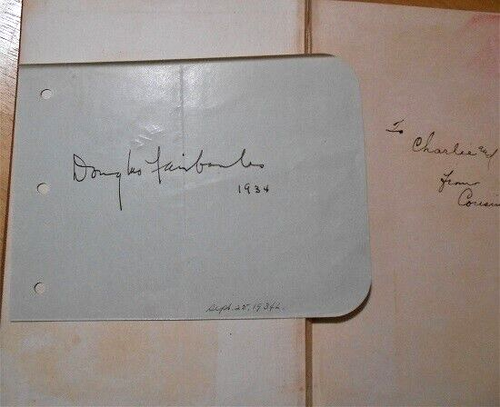 Douglas Fairbanks
1934
Sept. 25, 1934.
To
Charlie and
From
Cousin